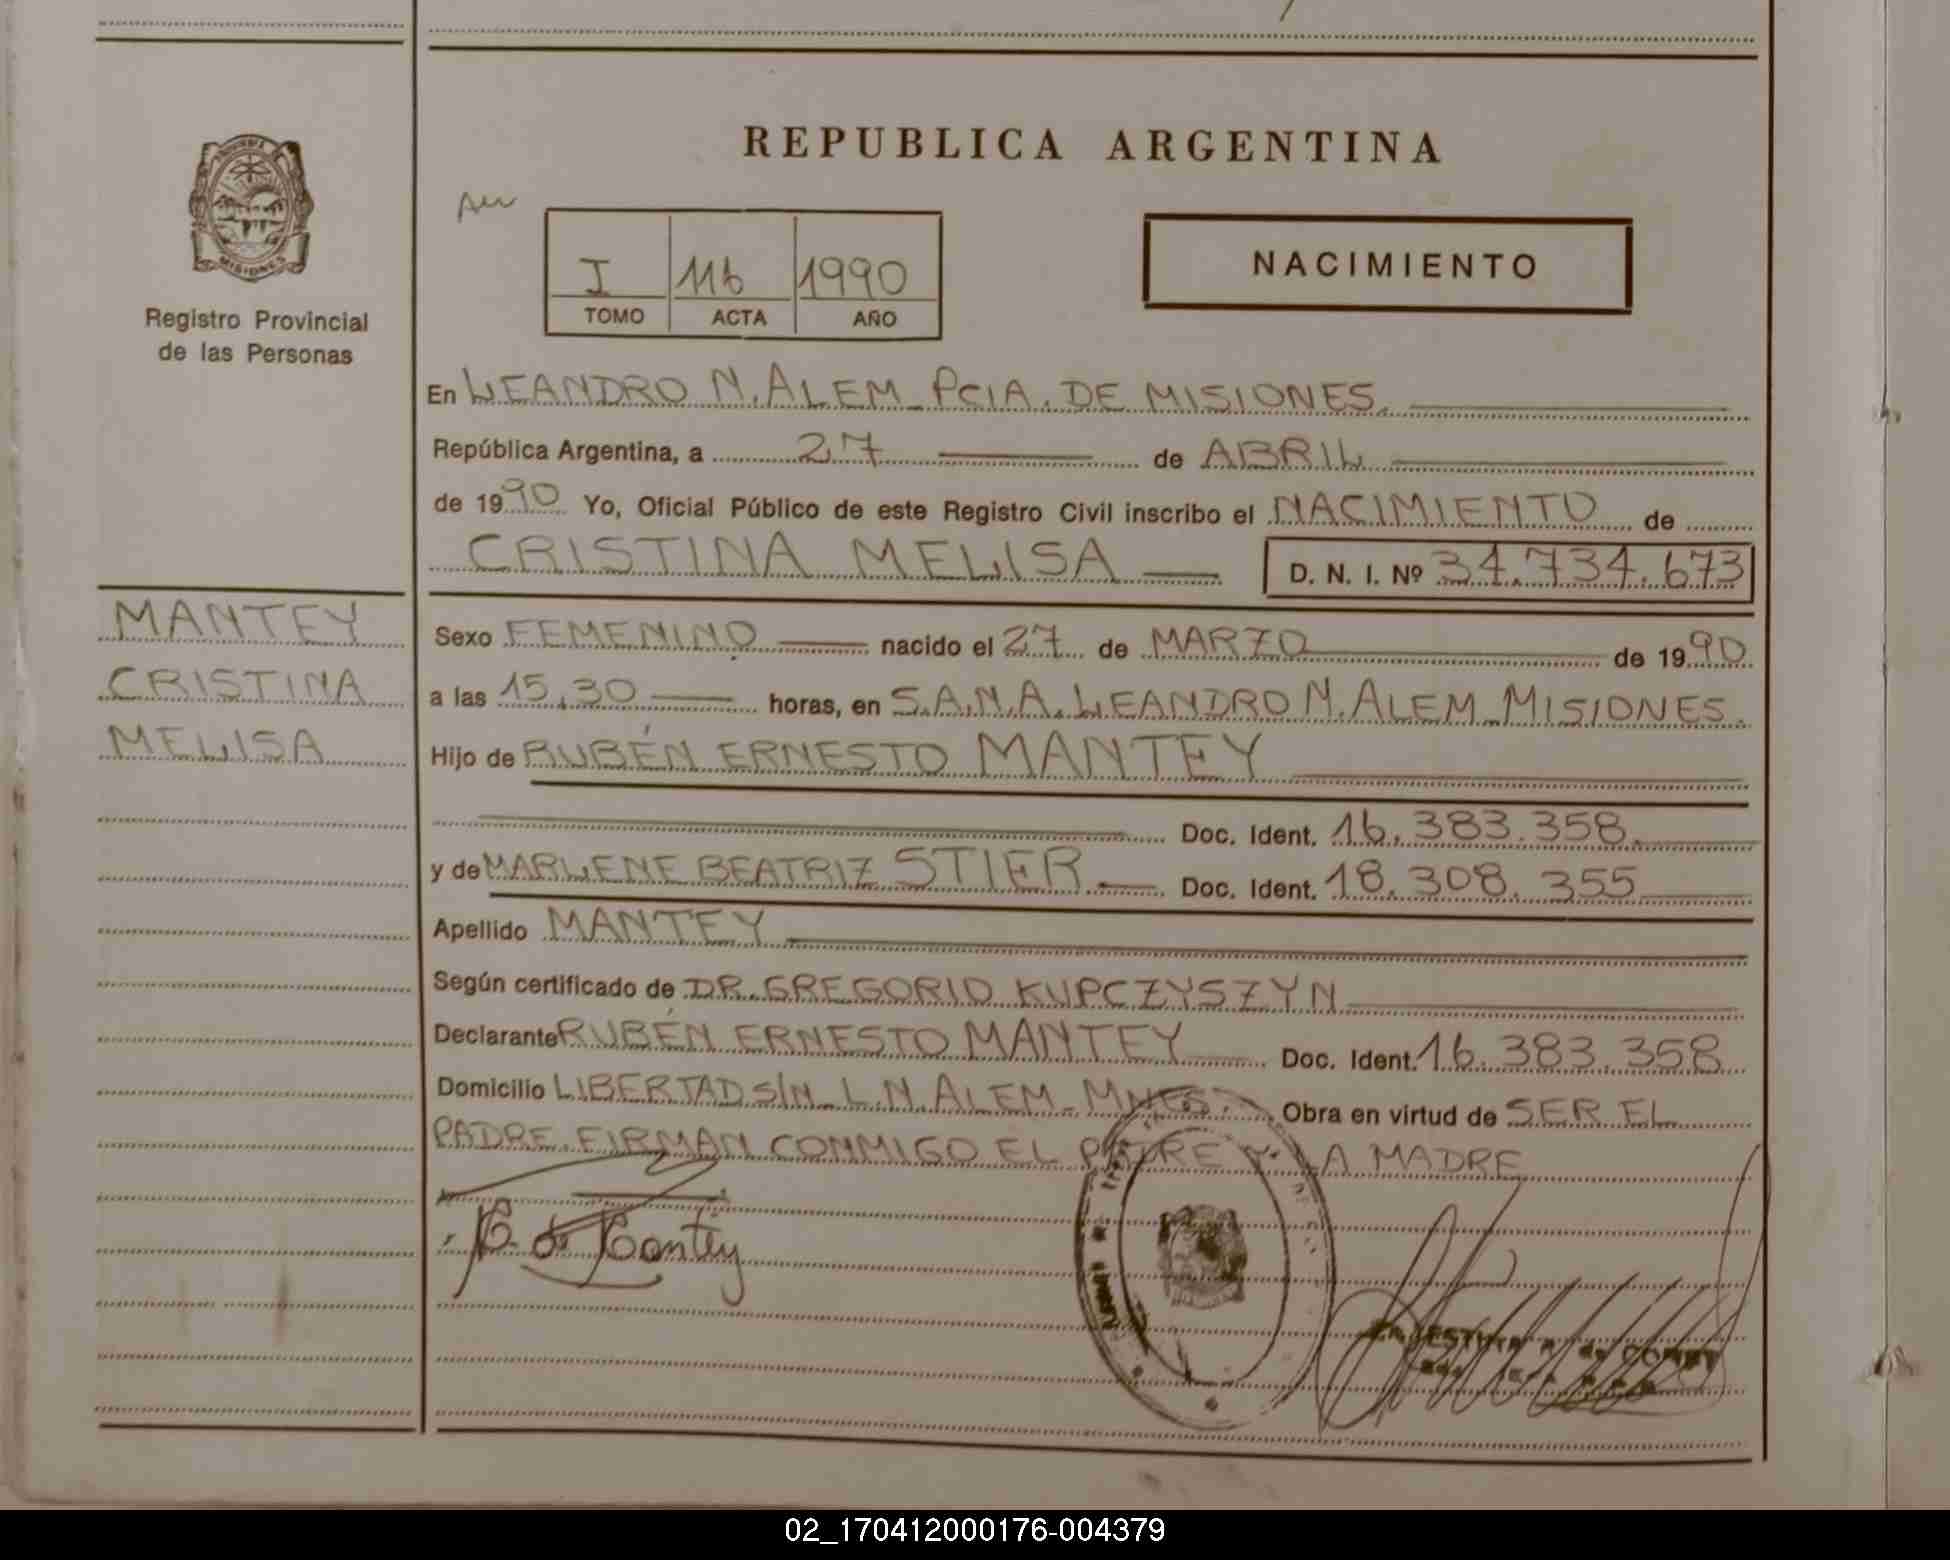 REPUBLICA ARGENTINA
MISIONES
Registro Provincial
de las Personas
I 116 1990
TOMO ACTA AÑO
NACIMIENTO
En LEANDRO N. ALEM - PCIA. DE MISIONES.
República Argentina, a 27 de ABRIL
de 1990 Yo, Oficial Público de este Registro Civil inscribo el NACIMIENTO de
CRISTINA MELISA D. N. I. Nº 34.734.673
MANTEY
CRISTINA
MELISA
Sexo FEMENINO nacido el 27 de MARZO de 1990
a las 15,30 horas, en S.A.N.A. LEANDRO N. ALEM - MISIONES.
Hijo de RUBÉN ERNESTO MANTEY
Doc. Ident. 16.383.358.
y de MARLENE BEATRIZ STIER Doc. Ident. 18.308.355
Apellido MANTEY
Según certificado de DR. GREGORIO KUPCZYSZYN
Declarante RUBÉN ERNESTO MANTEY Doc. Ident. 16.383.358
Domicilio LIBERTAD S/N - L.N. ALEM - MNES. Obra en virtud de SER EL
PADRE. FIRMAN CONMIGO EL PADRE Y LA MADRE
02_170412000176-004379